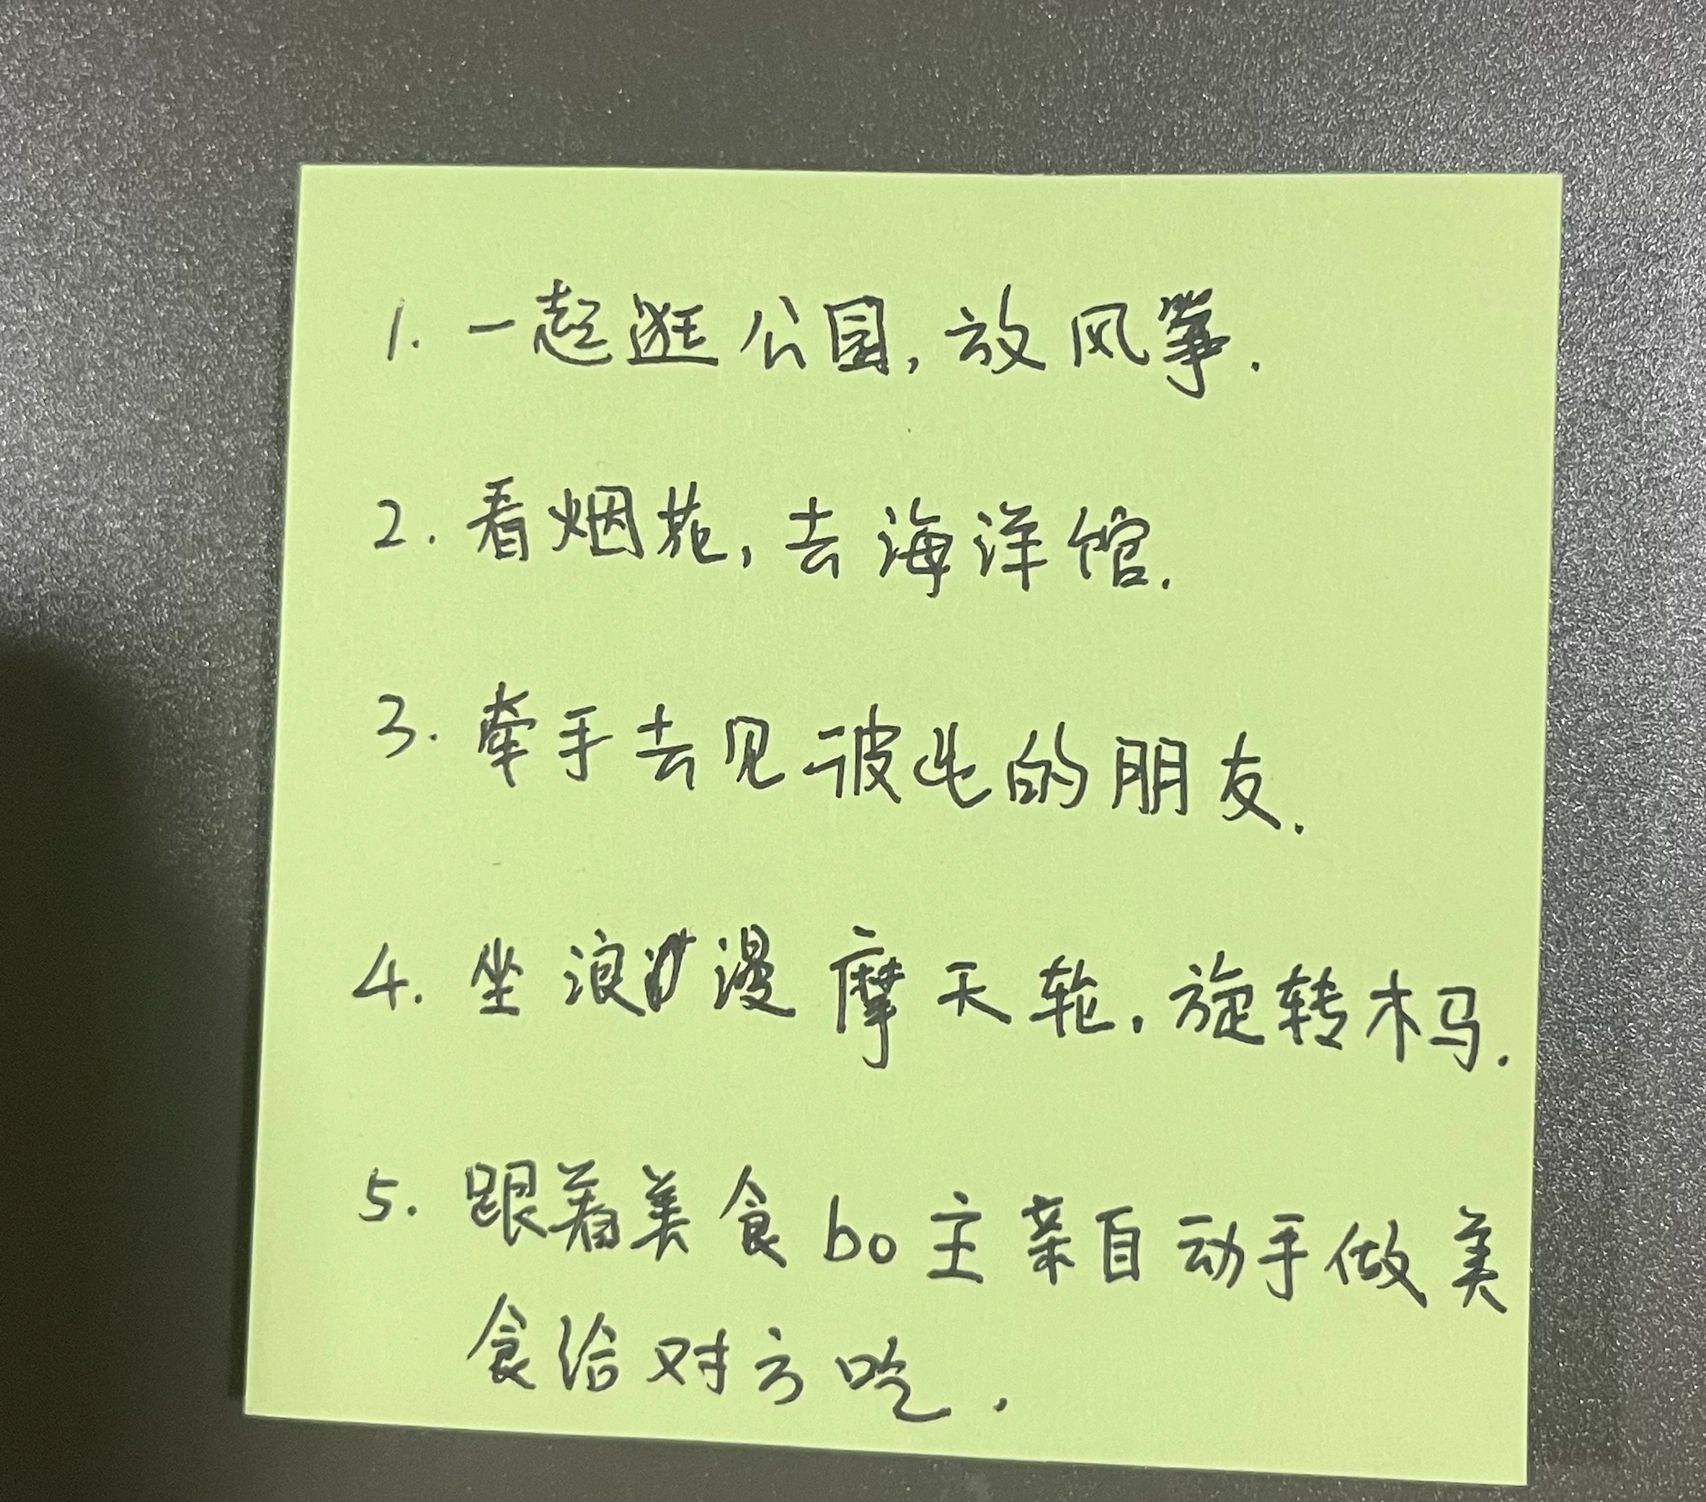 1. 一起逛公园,放风筝.
2. 看烟花,去海洋馆.
3. 牵手去见彼此的朋友.
4. 坐浪漫摩天轮,旋转木马.
5. 跟着美食bo主菜自动手做美
食给对方吃.